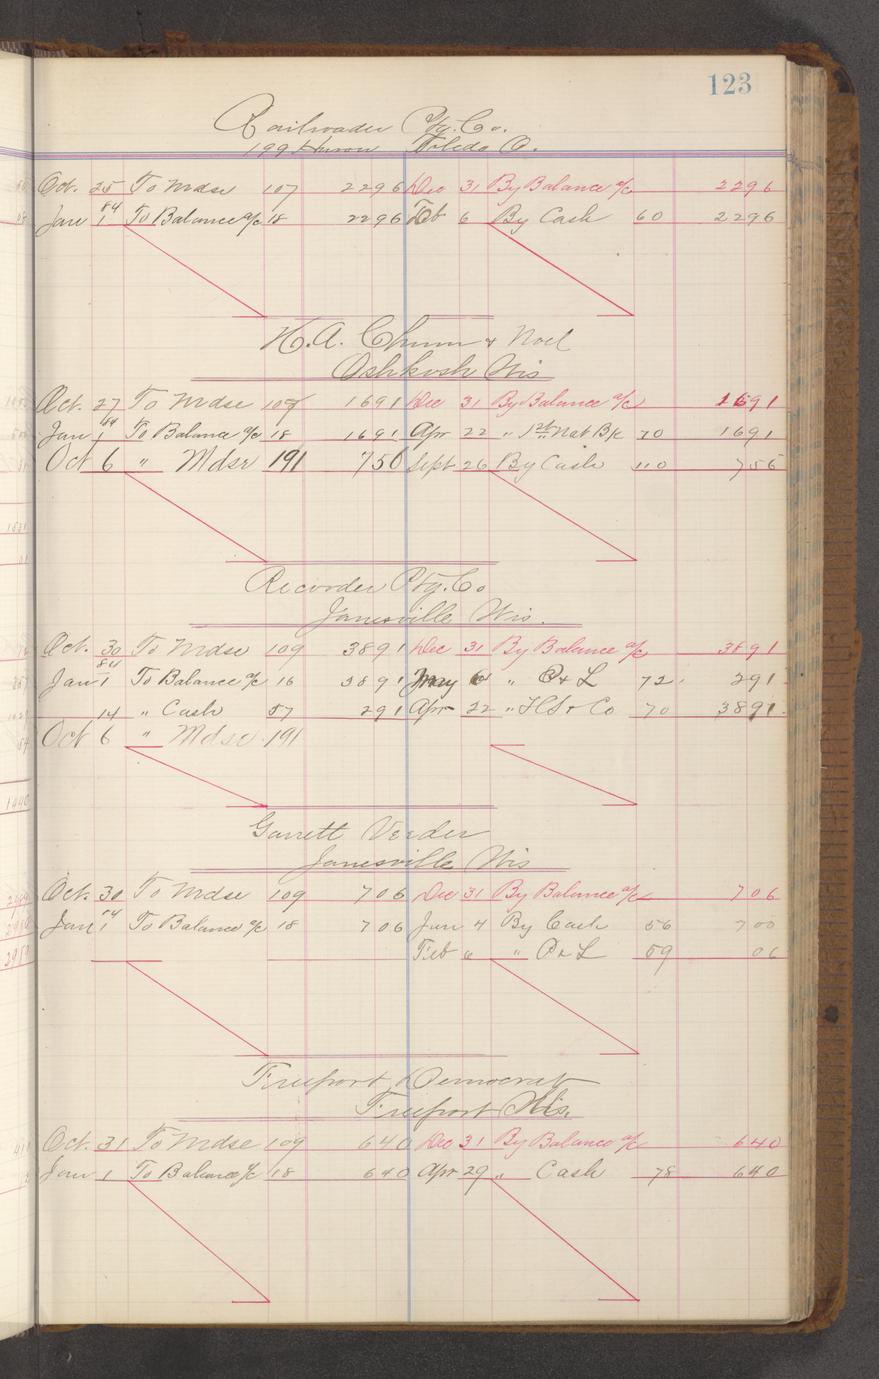 123
Railroader Ptg. Co.
199 Huron Toledo O.
Oct. 25 To Mdse 107 2296 Dec 31 By Balance a/c 2296
Jan 84 1 To Balance a/c 18 2296 Feb 6 By Cash 60 2296
H. A. & Noel
Oshkosh Wis
Oct. 27 To Mdse 107 1691 Dec 31 By Balance a/c 1691
Jan 84 1 To Balance a/c 18 1691 Apr 22 " 1st Nat Bk 70 1691
Oct 6 " Mdse 191 756 Sept 26 By Cash 110 756
Recorder Ptg. Co
Janesville Wis.
Oct. 30 To Mdse 109 3891 Dec 31 By Balance a/c 3891
Jan 84 1 To Balance a/c 16 3891 May 6 " P & L 72 291
14 " Cash 57 291 Apr 22 " & Co 70 3891
Oct 6 " Mdse 191
Garrett Veeder
Janesville Wis
Oct. 30 To Mdse 109 706 Dec 31 By Balance a/c 706
Jan 84 1 To Balance a/c 18 706 Jan 4 By Cash 56 700
Feb 6 " P & L 59 06
Freeport Democrat
Freeport
Oct. 31 To Mdse 109 640 Dec 31 By Balance a/c 640
Jan 1 To Balance a/c 18 640 Apr 29 " Cash 78 640